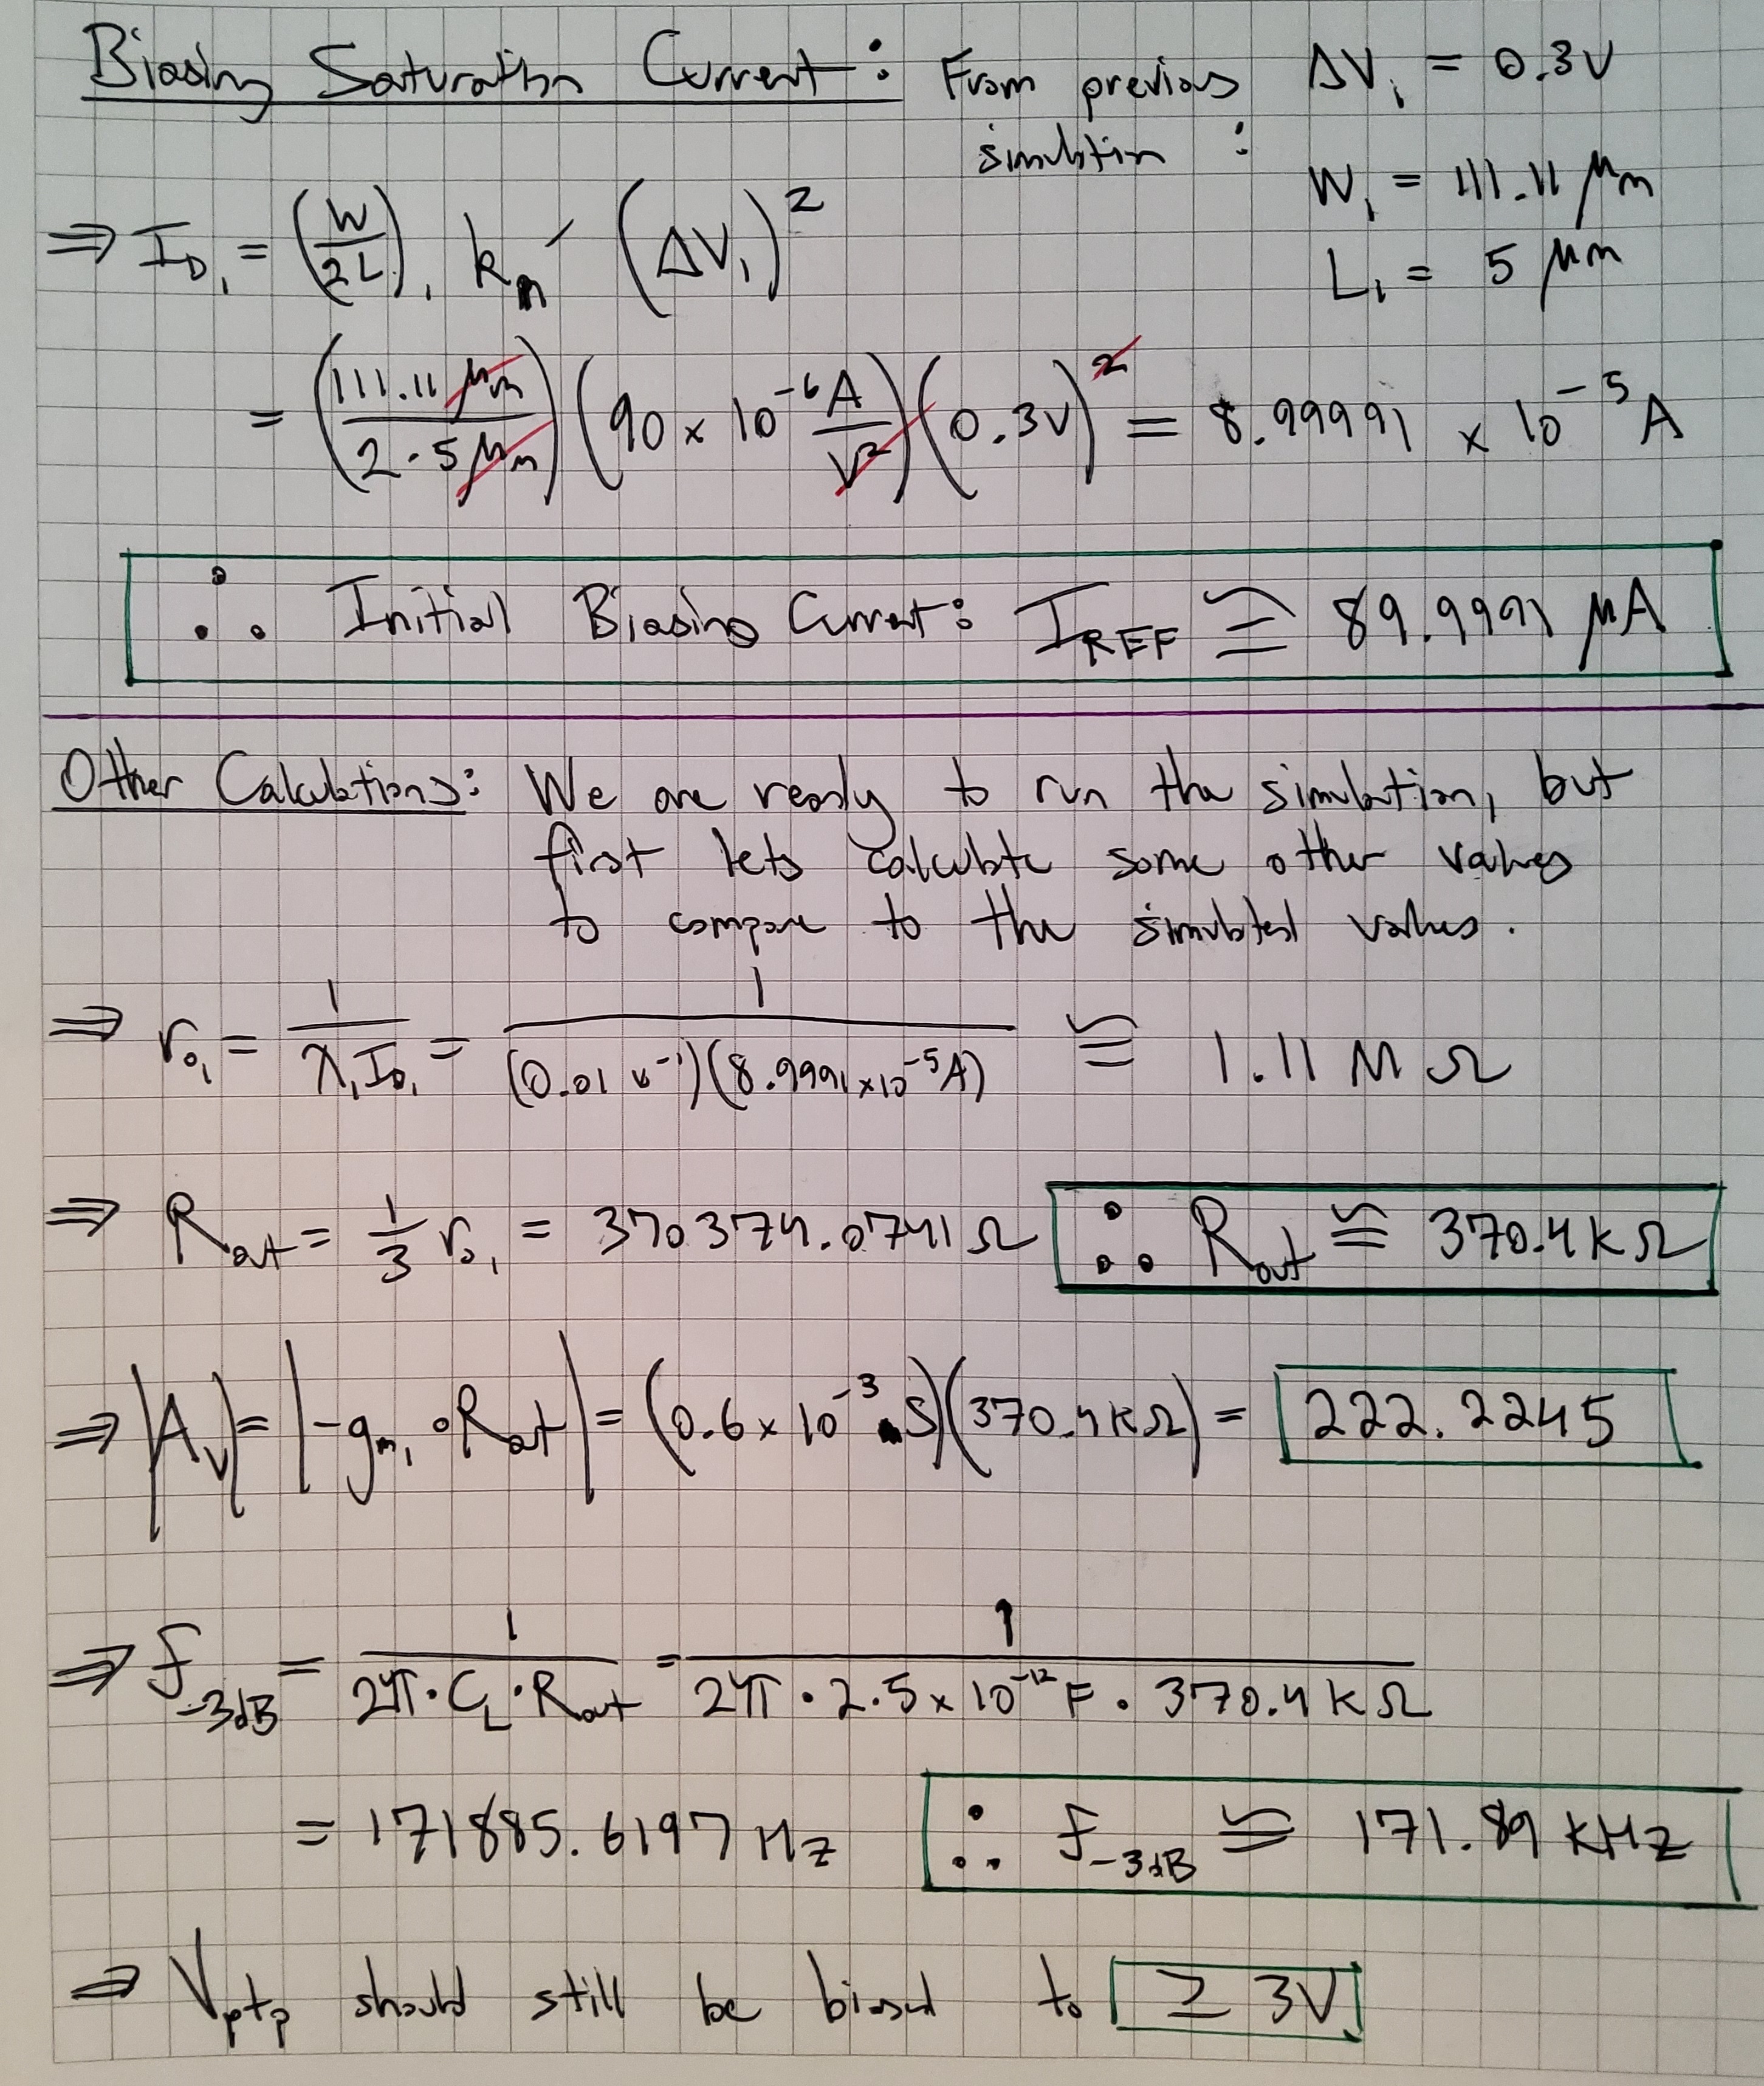 Biasing Saturation Current: From previous simulation: ΔV₁ = 0.3V
W₁ = 111.11 μm
L₁ = 5 μm
⇒ I_D₁ = (W/2L)₁ kₙ′ (ΔV₁)²
= (111.11 μm / 2·5 μm) (90 × 10⁻⁶ A/V²) (0.3V)² = 8.99991 × 10⁻⁵ A
∴ Initial Biasing Current: I_REF ≅ 89.9991 μA
Other Calculations: We are ready to run the simulation, but
first lets calculate some other values
to compare to the simulated values.
⇒ r₀₁ = 1 / λ₁I_D₁ = 1 / (0.01 V⁻¹)(8.9991×10⁻⁵A) ≅ 1.11 MΩ
⇒ R_out = 1/3 r₀₁ = 370374.0741Ω ∴ R_out ≅ 370.4kΩ
⇒ |A_V| = |-g_m₁ · R_out| = (0.6 × 10⁻³ S)(370.4kΩ) = 222.2245
⇒ f_-3dB = 1 / 2π·C_L·R_out = 1 / 2π · 2.5 × 10⁻¹² F · 370.4 kΩ
= 171885.6197 Hz ∴ f_-3dB ≅ 171.89 KHz
⇒ V_ptp should still be biased to ≥ 3V